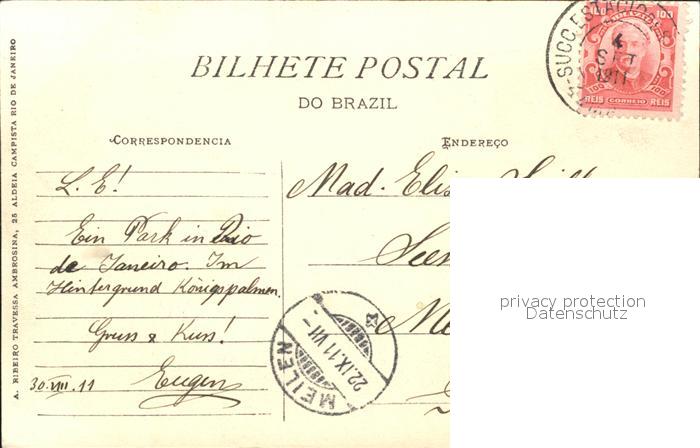 BILHETE POSTAL
DO BRAZIL
CORRESPONDENCIA
ENDEREÇO
A. RIBEIRO TRAVESSA AMBROSINA, 25 ALDEIA CAMPISTA RIO DE JANEIRO
L. E!
Ein Park in Rio
de Janeiro. Im
Hintergrund Königspalmen.
Gruss & Kuss!
30.VIII.11 Eugen
Mad. Elis
MEILEN
22.IX.11 VII-
SUCC. ESTACIO
100
100 100
REIS CORREIO REIS
privacy protection
Datenschutz